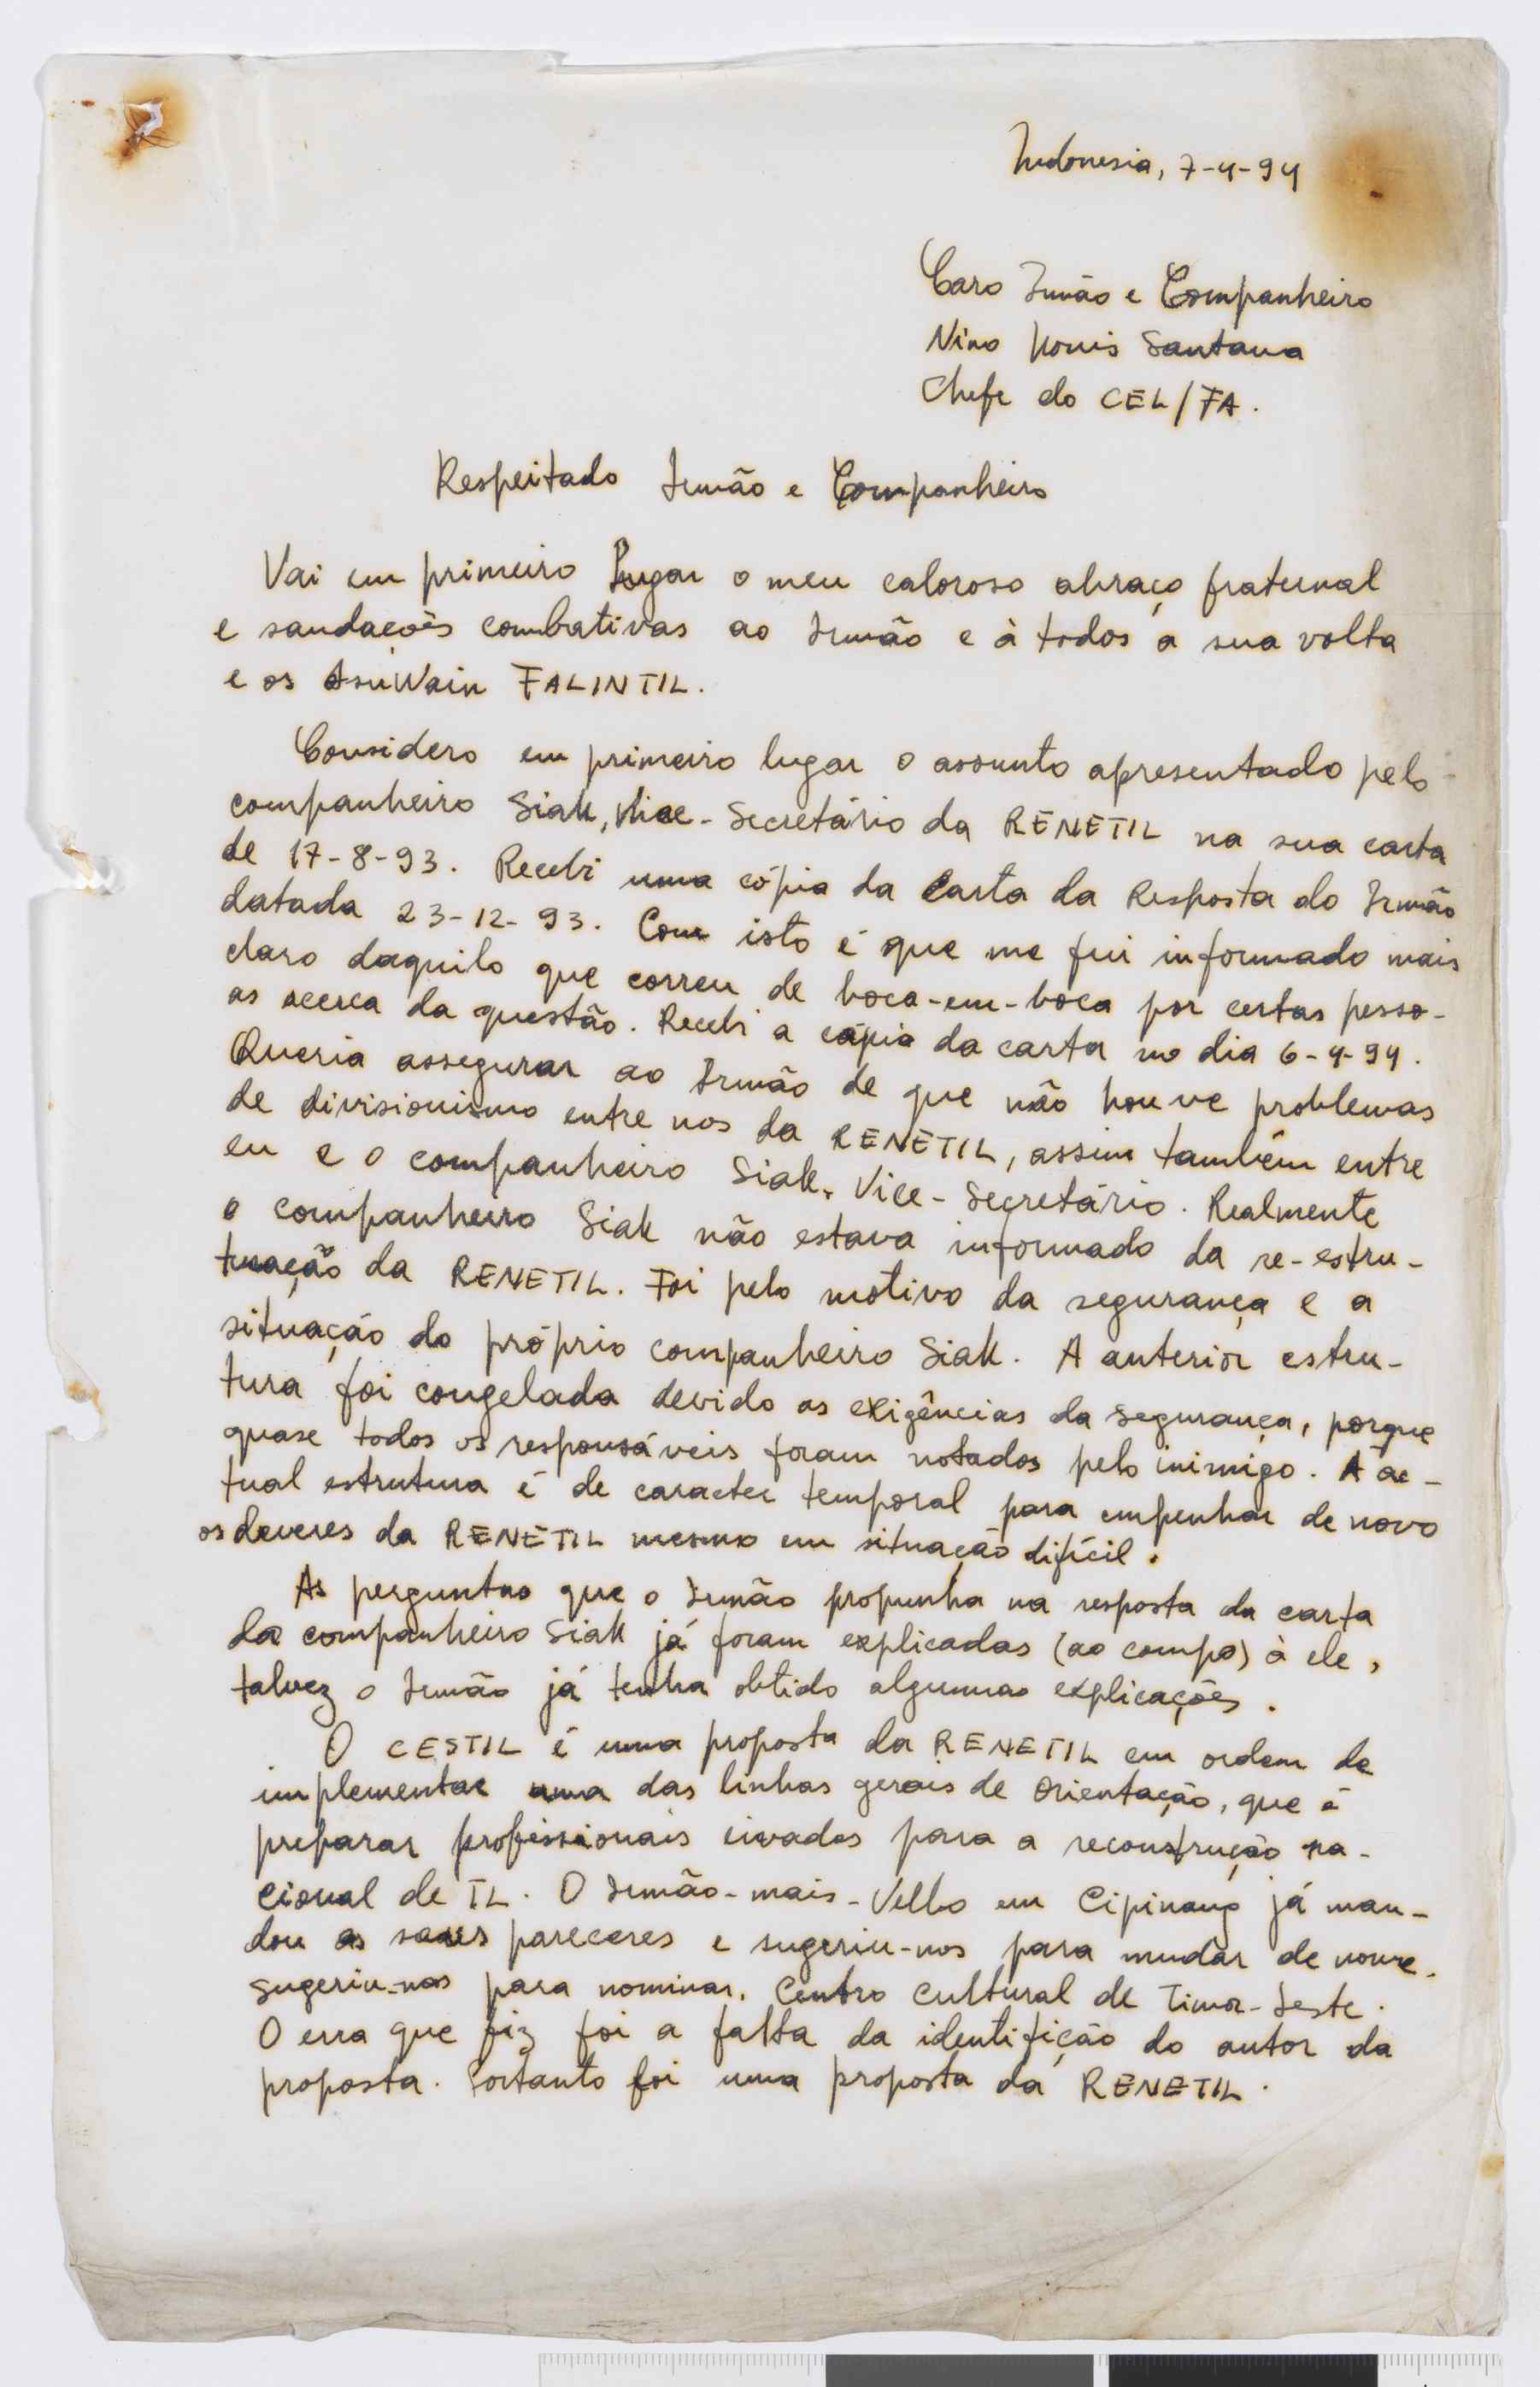 Indonesia, 7-4-94
Caro Irmão e Companheiro
Nino Konis Santana
Chefe do CEL/FA.
Respeitado Irmão e Companheiro
Vai em primeiro lugar o meu caloroso abraço fraternal
e saudações combativas ao Irmão e à todos a sua volta
e os AsuWain FALINTIL.
Considero em primeiro lugar o assunto apresentado pelo
companheiro Siak, Vice-Secretário da RENETIL na sua carta
de 17-8-93. Recebi uma cópia da Carta da Resposta do Irmão
datada 23-12-93. Com isto é que me fui informado mais
claro daquilo que correu de boca-em-boca por certas pesso-
as acerca da questão. Recebi a cópia da carta no dia 6-4-94.
Queria assegurar ao Irmão de que não houve problemas
de divisionismo entre nos da RENETIL, assim também entre
eu e o companheiro Siak, Vice-Secretário. Realmente
o companheiro Siak não estava informado da re-estru-
turação da RENETIL. Foi pelo motivo da segurança e a
situação do próprio companheiro Siak. A anterior estru-
tura foi congelada devido as exigências da segurança, porque
quase todos os responsáveis foram notados pelo inimigo. A ac-
tual estrutura é de caracter temporal para empenhar de novo
os deveres da RENETIL mesmo em situação difícil.
As perguntas que o Irmão propunha na resposta da carta
do companheiro Siak já foram explicadas (ao compo) à ele,
talvez o Irmão já tenha obtido algumas explicações.
O CESTIL é uma proposta da RENETIL em ordem de
implementar uma das linhas gerais de Orientação, que é
preparar profissionais civados para a reconstrução na-
cional de TL. O Irmão-mais-Velho em Cipinang já man-
dou os seus pareceres e sugeriu-nos para mudar de nome.
Sugeriu-nos para nominar, Centro Cultural de Timor-Leste.
O erra que fiz foi a falta da identifição do autor da
proposta. Portanto foi uma proposta da RENETIL.